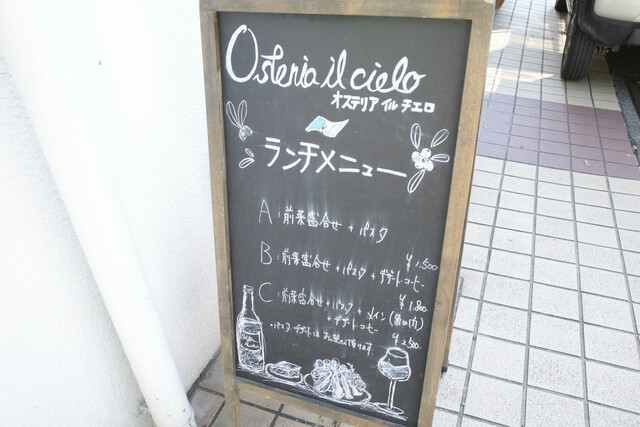 Osteria il cielo
オステリア イル チエロ
ランチメニュー
A:前菜盛合せ + パスタ
¥1.500
B:前菜盛合せ + パスタ + デザート・コーヒー
¥1.800
C:前菜盛合せ + パスタ + メイン(魚or肉)
+ デザート・コーヒー
¥2.500
・パスタ、デザートは お選び頂けます。